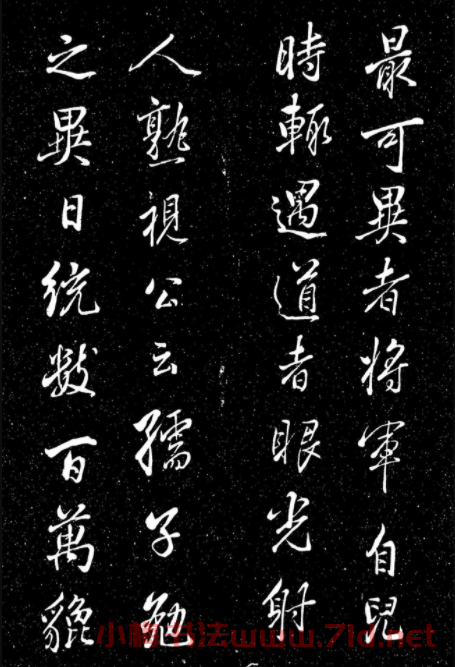 最可異者將軍自兒
時輙遇道者眼光射
人熟視公云孺子勉
之異日統數百萬貔
小楷书法www.71d.net